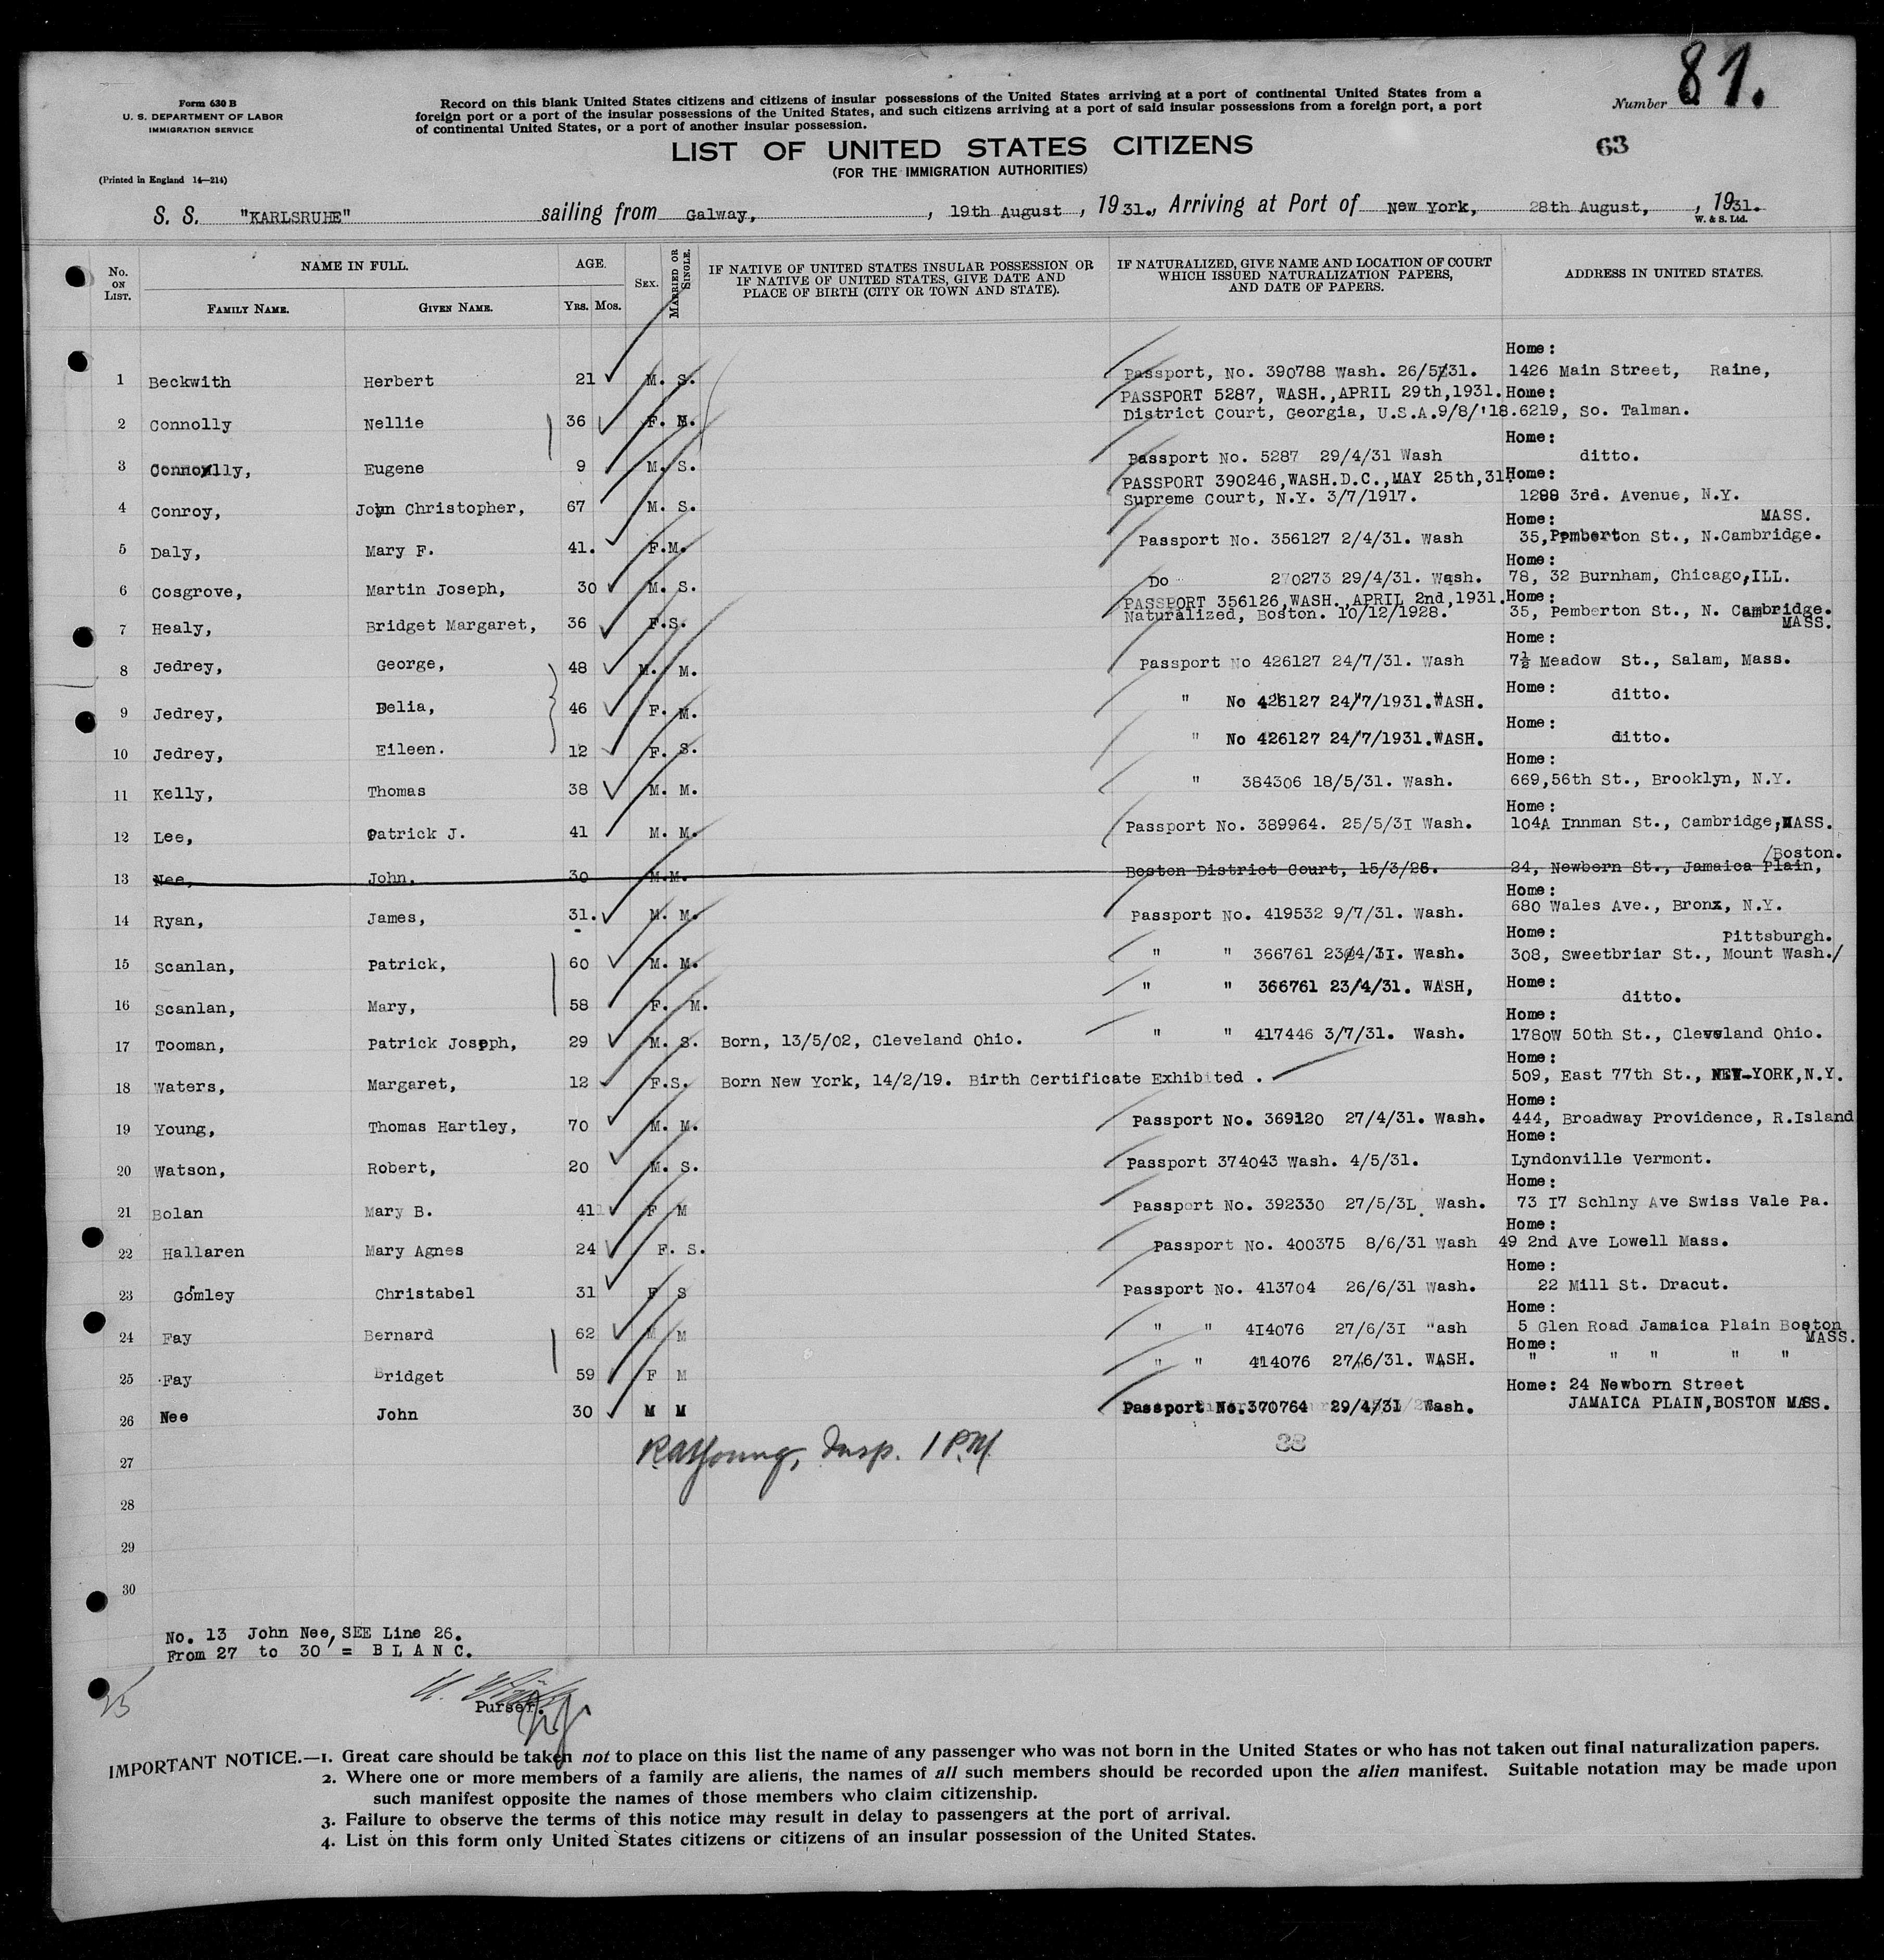 81.
Form 630 B
U. S. DEPARTMENT OF LABOR
IMMIGRATION SERVICE
(Printed in England 14—214)
Record on this blank United States citizens and citizens of insular possessions of the United States arriving at a port of continental United States from a
foreign port or a port of the insular possessions of the United States, and such citizens arriving at a port of said insular possessions from a foreign port, a port
of continental United States, or a port of another insular possession.
Number
63
LIST OF UNITED STATES CITIZENS
(FOR THE IMMIGRATION AUTHORITIES)
S. S. "KARLSRUHE" sailing from Galway, , 19th August , 19 31., Arriving at Port of New York, 28th August, , 1931.
W. & S. Ltd.
No. ON LIST. NAME IN FULL. AGE. SEX. MARRIED OR SINGLE. IF NATIVE OF UNITED STATES INSULAR POSSESSION OR IF NATIVE OF UNITED STATES, GIVE DATE AND PLACE OF BIRTH (CITY OR TOWN AND STATE). IF NATURALIZED, GIVE NAME AND LOCATION OF COURT WHICH ISSUED NATURALIZATION PAPERS, AND DATE OF PAPERS. ADDRESS IN UNITED STATES.
FAMILY NAME. GIVEN NAME. YRS. MOS.
Home:
1 Beckwith Herbert 21 M. S. Passport, No. 390788 Wash. 26/5/31. 1426 Main Street, Raine,
PASSPORT 5287, WASH.,APRIL 29th,1931. Home:
2 Connolly Nellie 36 F. M. District Court, Georgia, U.S.A.9/8/'18. 6219, So. Talman.
Home:
3 Connolly, Eugene 9 M. S. Passport No. 5287 29/4/31 Wash ditto.
PASSPORT 390246,WASH.D.C.,MAY 25th,31. Home:
4 Conroy, John Christopher, 67 M. S. Supreme Court, N.Y. 3/7/1917. 1288 3rd. Avenue, N.Y.
Home: MASS.
5 Daly, Mary F. 41. F.M. Passport No. 356127 2/4/31. Wash 35, Pemberton St., N.Cambridge.
Home:
6 Cosgrove, Martin Joseph, 30 M. S. Do 270273 29/4/31. Wash. 78, 32 Burnham, Chicago,ILL.
PASSPORT 356126,WASH.,APRIL 2nd,1931. Home:
7 Healy, Bridget Margaret, 36 F.S. Naturalized, Boston. 10/12/1928. 35, Pemberton St., N. Cambridge.
MASS.
Home:
8 Jedrey, George, 48 M. M. Passport No 426127 24/7/31. Wash 7½ Meadow St., Salam, Mass.
9 Jedrey, Delia, 46 F. M. " No 426127 24/7/1931.WASH. Home: ditto.
Home:
10 Jedrey, Eileen. 12 F. S. " No 426127 24/7/1931.WASH. ditto.
Home:
11 Kelly, Thomas 38 M. M. " 384306 18/5/31. Wash. 669,56th St., Brooklyn, N.Y.
Home:
12 Lee, Patrick J. 41 M. M. Passport No. 389964. 25/5/3I Wash. 104A Innman St., Cambridge,MASS.
/Boston.
13 Nee, John, 30 M.M. Boston District Court, 15/3/26. 24, Newbern St., Jamaica Plain,
Home:
14 Ryan, James, 31. M. M. Passport No. 419532 9/7/31. Wash. 680 Wales Ave., Bronx, N.Y.
Home: Pittsburgh.
15 Scanlan, Patrick, 60 M. M. " " 366761 23/4/31. Wash. 308, Sweetbriar St., Mount Wash./
16 Scanlan, Mary, 58 F. M. " " 366761 23/4/31. WASH, Home: ditto.
Home:
17 Tooman, Patrick Joseph, 29 M. S. Born, 13/5/02, Cleveland Ohio. " " 417446 3/7/31. Wash. 1780W 50th St., Cleveland Ohio.
Home:
18 Waters, Margaret, 12 F.S. Born New York, 14/2/19. Birth Certificate Exhibited . 509, East 77th St., NEW-YORK,N.Y.
Home:
19 Young, Thomas Hartley, 70 M. M. Passport No. 369120 27/4/31. Wash. 444, Broadway Providence, R.Island
Home:
20 Watson, Robert, 20 M. S. Passport 374043 Wash. 4/5/31. Lyndonville Vermont.
Home:
21 Bolan Mary B. 41 F M Passport No. 392330 27/5/3L. Wash. 73 I7 Schlny Ave Swiss Vale Pa.
Home:
22 Hallaren Mary Agnes 24 F. S. Passport No. 400375 8/6/31 Wash 49 2nd Ave Lowell Mass.
Home:
23 Gomley Christabel 31 F S Passport No. 413704 26/6/31 Wash. 22 Mill St. Dracut.
Home:
24 Fay Bernard 62 M M " " 4I4076 27/6/3I "ash 5 Glen Road Jamaica Plain Boston
MASS.
Home:
25 Fay Bridget 59 F M " " 414076 27/6/31. WASH. " " " " "
Home: 24 Newborn Street
26 Nee John 30 M M Passport No.370764 29/4/31 Wash. JAMAICA PLAIN,BOSTON MASS.
R.A.Young, Insp. 1 P.M. 38
27
28
29
30
No. 13 John Nee, SEE Line 26.
From 27 to 30 = B L A N C.
25
Purser.
IMPORTANT NOTICE.—1. Great care should be taken not to place on this list the name of any passenger who was not born in the United States or who has not taken out final naturalization papers.
2. Where one or more members of a family are aliens, the names of all such members should be recorded upon the alien manifest. Suitable notation may be made upon
such manifest opposite the names of those members who claim citizenship.
3. Failure to observe the terms of this notice may result in delay to passengers at the port of arrival.
4. List on this form only United States citizens or citizens of an insular possession of the United States.